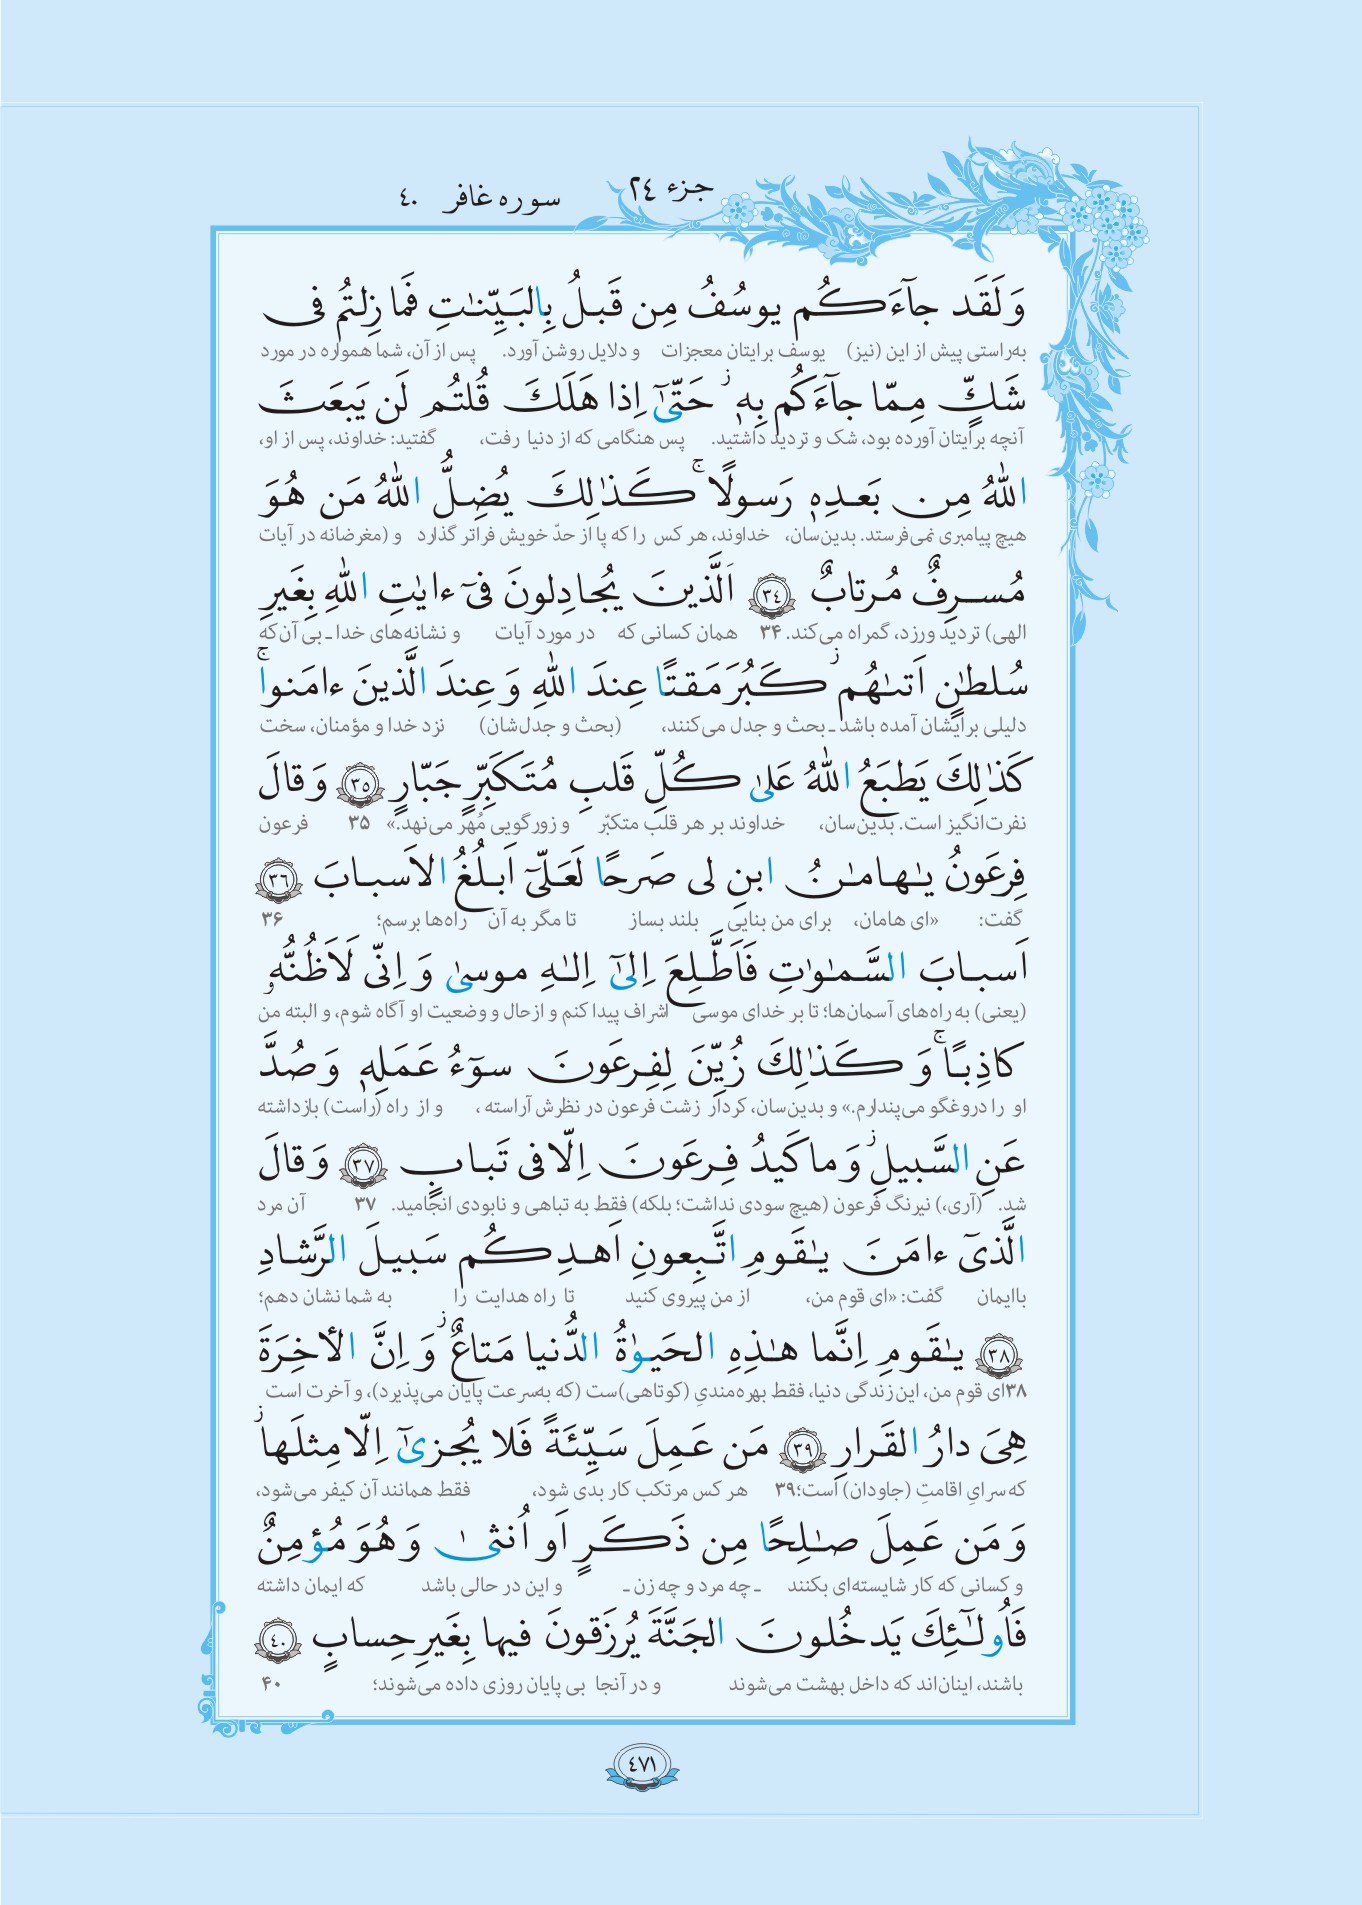 جزء ٢٤ سوره غافر ٤٠
وَ لَقَد جآءَكُم يوسُفُ مِن قَبلُ بِالبَيِّنٰتِ فَمازِلتُم فى
به‌راستی پیش از این (نیز) یوسف برایتان معجزات و دلایل روشن آورد. پس از آن، شما همواره در مورد
شَكٍّ مِمّا جآءَكُم بِهٖ ۖ حَتّىٰٓ اِذا هَلَكَ قُلتُم لَن يَبعَثَ
آنچه برایتان آورده بود، شک و تردید داشتید. پس هنگامی که از دنیا رفت، گفتید: خداوند، پس از او،
اللهُ مِن بَعدِهٖ رَسولًا ۚ كَذٰلِكَ يُضِلُّ اللهُ مَن هُوَ
هیچ پیامبری نمی‌فرستد. بدین‌سان، خداوند، هر کس را که پا از حدّ خویش فراتر گذارد و (مغرضانه در آیات
مُسرِفٌ مُرتابٌ ﴿٣٤﴾ اَلَّذينَ يُجادِلونَ فىٓ ءايٰتِ اللهِ بِغَيرِ
الهی) تردید ورزد، گمراه می‌کند. ۳۴ همان کسانی که در مورد آیات و نشانه‌های خدا ـ بی آن‌که
سُلطٰنٍ اَتىٰهُم ۖ كَبُرَ مَقتًا عِندَ اللهِ وَ عِندَ الَّذينَ ءامَنوا ۚ
دلیلی برایشان آمده باشد ـ بحث و جدل می‌کنند، (بحث و جدل‌شان) نزد خدا و مؤمنان، سخت
كَذٰلِكَ يَطبَعُ اللهُ عَلىٰ كُلِّ قَلبِ مُتَكَبِّرٍ جَبّارٍ ﴿٣٥﴾ وَ قالَ
نفرت‌انگیز است. بدین‌سان، خداوند بر هر قلب متکبّر و زورگویی مُهر می‌نهد.» ۳۵ فرعون
فِرعَونُ يٰهامٰنُ ابنِ لى صَرحًا لَعَلّىٓ اَبلُغُ الاَسبابَ ﴿٣٦﴾
گفت: «ای هامان، برای من بنایی بلند بساز تا مگر به آن راه‌ها برسم؛ ۳۶
اَسبابَ السَّمٰوٰتِ فَاَطَّلِعَ اِلىٰٓ اِلٰهِ موسىٰ وَ اِنّى لَاَظُنُّهٗ
(یعنی) به راه‌های آسمان‌ها؛ تا بر خدای موسی اشراف پیدا کنم و از حال و وضعیت او آگاه شوم، و البته من
كاذِبًا ۚ وَ كَذٰلِكَ زُيِّنَ لِفِرعَونَ سوٓءُ عَمَلِهٖ وَ صُدَّ
او را دروغگو می‌پندارم.» و بدین‌سان، کردار زشت فرعون در نظرش آراسته ، و از راه (راست) بازداشته
عَنِ السَّبيلِ ۖ وَ ما كَيدُ فِرعَونَ اِلّا فى تَبابٍ ﴿٣٧﴾ وَ قالَ
شد. (آری،) نیرنگ فرعون (هیچ سودی نداشت؛ بلکه) فقط به تباهی و نابودی انجامید. ۳۷ آن مرد
الَّذىٓ ءامَنَ يٰقَومِ اتَّبِعونِ اَهدِكُم سَبيلَ الرَّشادِ
باایمان گفت: «ای قوم من، از من پیروی کنید تا راه هدایت را به شما نشان دهم؛
﴿٣٨﴾ يٰقَومِ اِنَّما هٰذِهِ الحَيوٰةُ الدُّنيا مَتاعٌ ۖ وَ اِنَّ الأخِرَةَ
۳۸ای قوم من، این زندگی دنیا، فقط بهره‌مندیِ (کوتاهی)ست (که به‌سرعت پایان می‌پذیرد)، و آخرت است
هِىَ دارُ القَرارِ ﴿٣٩﴾ مَن عَمِلَ سَيِّئَةً فَلا يُجزىٰٓ اِلّا مِثلَها ۖ
که سرایِ اقامتِ (جاودان) است؛۳۹ هر کس مرتکب کار بدی شود، فقط همانند آن کیفر می‌شود،
وَ مَن عَمِلَ صٰلِحًا مِن ذَكَرٍ اَو اُنثىٰ وَ هُوَ مُؤمِنٌ
و کسانی که کار شایسته‌ای بکنند ـ چه مرد و چه زن ـ و این در حالی باشد که ایمان داشته
فَاُولٰٓئِكَ يَدخُلونَ الجَنَّةَ يُرزَقونَ فيها بِغَيرِ حِسابٍ ﴿٤٠﴾
باشند، اینان‌اند که داخل بهشت می‌شوند و در آنجا بی پایان روزی داده می‌شوند؛ ۴۰
٤٧١